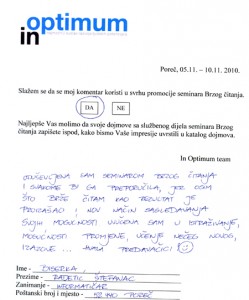 optimum
in
Poreč, 05.11. – 10.11. 2010.
Slažem se da se moj komentar koristi u svrhu promocije seminara Brzog čitanja.
DA NE
Najljepše Vas molimo da svoje dojmove sa službenog dijela seminara Brzog
čitanja zapišete ispod, kako bismo Vaše impresije uvrstili u katalog dojmova.
In Optimum team
ODUŠEVLJENA SAM SEMINAROM BRZOG ČITANJA
I SVAKOME BI GA PREPORUČILA, JER OSIM
ŠTO BRŽE ČITAM KAO REZULTAT JE
PROIZAŠAO I NOV NAČIN SAGLEDAVANJA
SVOJIH MOGUĆNOSTI UVUČENA SAM U ISTRAŽIVANJE,
MOGUĆNOSTI PROMJENE, UČENJE NEČEG NOVOG,
IZAZOVE ... HVALA PREDAVAČICI!
Ime - BISERKA
Prezime - RADETIĆ ŠTEFANAC
Zanimanje - INFORMATIČAR
Poštanski broj i mjesto - 52440 POREČ